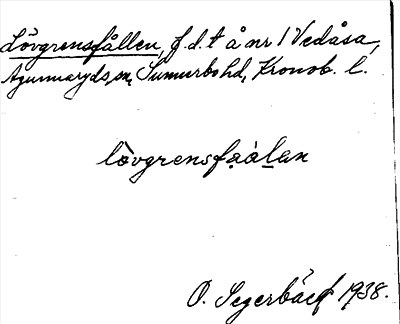 Lövgrensfållen, f.d.t å nr 1 Vedåsa,
Agunnaryds sn, Sunnerbo hd, Kronob. l.
lövgrensfa̤àl̲an
O. Segerbäck 1938.